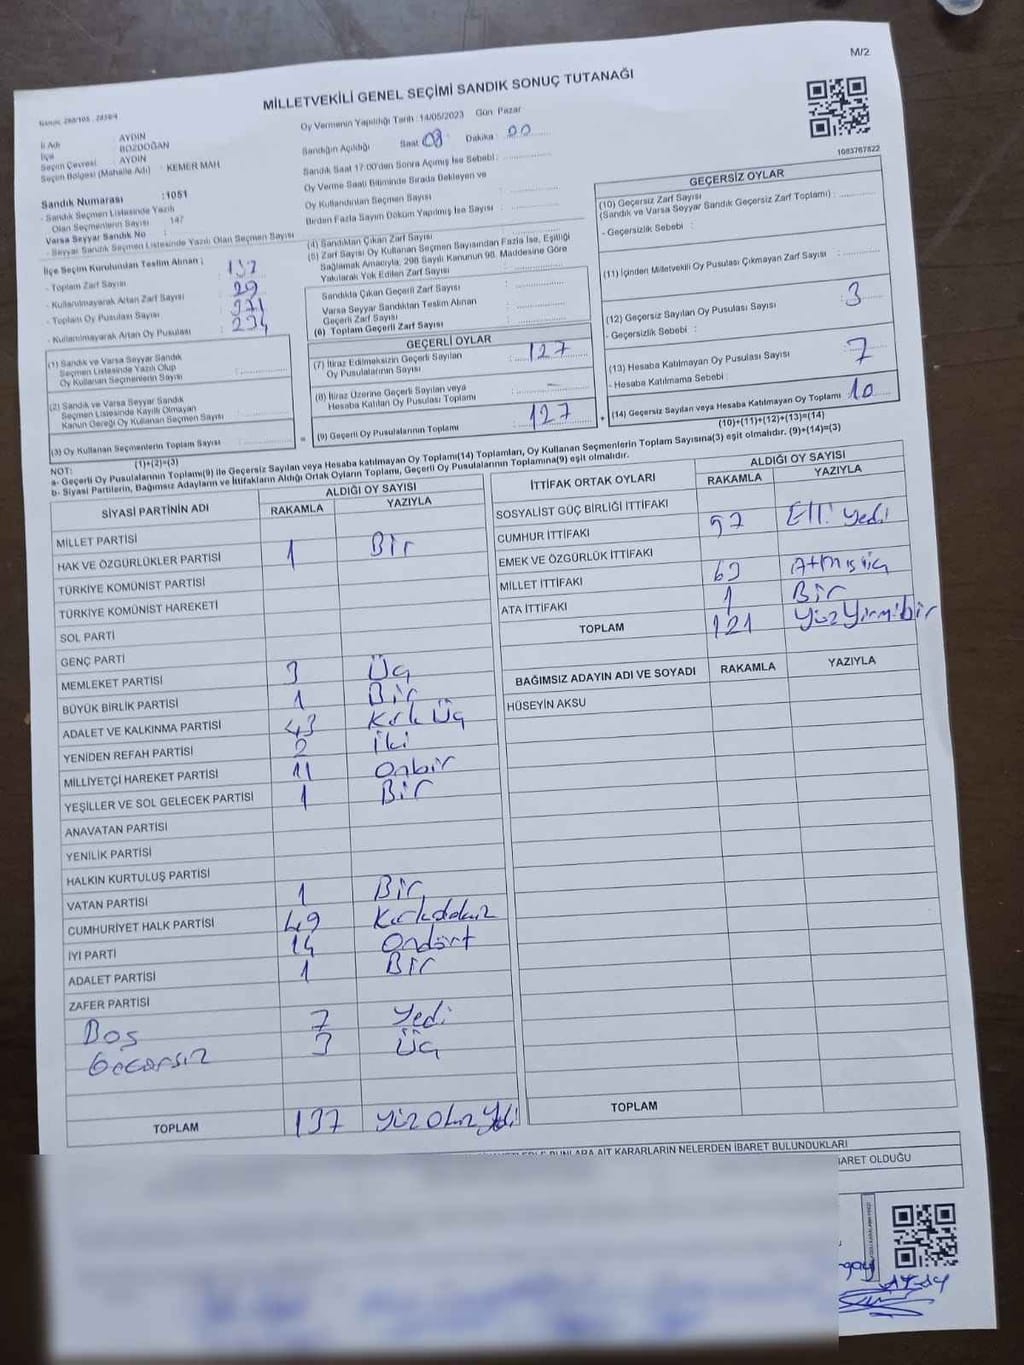 M/2
MİLLETVEKİLİ GENEL SEÇİMİ SANDIK SONUÇ TUTANAĞI
Oy Vermenin Yapıldığı Tarih : 14/05/2023 Gün Pazar
İl Adı : AYDIN
İlçe : BOZDOĞAN
Seçim Çevresi : AYDIN
Seçim Bölgesi (Mahalle Adı) : KEMER MAH.
Sandık Numarası : 1051
- Sandık Seçmen Listesinde Yazılı
Olan Seçmenlerin Sayısı : 147
Varsa Seyyar Sandık No :
- Seyyar Sandık Seçmen Listesinde Yazılı Olan Seçmen Sayısı
Sandığın Açıldığı Saat 08 Dakika : 00
Sandık Saat 17:00'den Sonra Açılmış İse Sebebi :
Oy Verme Saati Bitiminde Sırada Bekleyen ve
Oy Kullandırılan Seçmen Sayısı
Birden Fazla Sayım Döküm Yapılmış İse Sayısı :
1083767822
İlçe Seçim Kurulundan Teslim Alınan ;
- Toplam Zarf Sayısı
- Kullanılmayarak Artan Zarf Sayısı : 29
- Toplam Oy Pusulası Sayısı : 371
- Kullanılmayarak Artan Oy Pusulası : 234
(1) Sandık ve Varsa Seyyar Sandık
Seçmen Listesinde Yazılı Olup
Oy Kullanan Seçmenlerin Sayısı :
(2) Sandık ve Varsa Seyyar Sandık
Seçmen Listesinde Kayıtlı Olmayan
Kanun Gereği Oy Kullanan Seçmen Sayısı :
(3) Oy Kullanan Seçmenlerin Toplam Sayısı :
(1)+(2)=(3)
(4) Sandıktan Çıkan Zarf Sayısı :
(5) Zarf Sayısı Oy Kullanan Seçmen Sayısından Fazla İse, Eşitliği
Sağlamak Amacıyla, 298 Sayılı Kanunun 98. Maddesine Göre
Yakılarak Yok Edilen Zarf Sayısı :
Sandıkta Çıkan Geçerli Zarf Sayısı :
Varsa Seyyar Sandıktan Teslim Alınan
Geçerli Zarf Sayısı :
(6) Toplam Geçerli Zarf Sayısı :
GEÇERLİ OYLAR
(7) İtiraz Edilmeksizin Geçerli Sayılan
Oy Pusulalarının Sayısı : 127
(8) İtiraz Üzerine Geçerli Sayılan veya
Hesaba Katılan Oy Pusulası Toplamı : -
(9) Geçerli Oy Pusulalarının Toplamı : 127
GEÇERSİZ OYLAR
(10) Geçersiz Zarf Sayısı
(Sandık ve Varsa Seyyar Sandık Geçersiz Zarf Toplamı) :
- Geçersizlik Sebebi :
(11) İçinden Milletvekili Oy Pusulası Çıkmayan Zarf Sayısı :
(12) Geçersiz Sayılan Oy Pusulası Sayısı : 3
- Geçersizlik Sebebi :
(13) Hesaba Katılmayan Oy Pusulası Sayısı : 7
- Hesaba Katılmama Sebebi :
(14) Geçersiz Sayılan veya Hesaba Katılmayan Oy Toplamı : 10
(10)+(11)+(12)+(13)=(14)
NOT:
a- Geçerli Oy Pusulalarının Toplamı(9) ile Geçersiz Sayılan veya Hesaba katılmayan Oy Toplamı(14) Toplamları, Oy Kullanan Seçmenlerin Toplam Sayısına(3) eşit olmalıdır. (9)+(14)=(3)
b- Siyasi Partilerin, Bağımsız Adayların ve İttifakların Aldığı Ortak Oyların Toplamı, Geçerli Oy Pusulalarının Toplamına(9) eşit olmalıdır.
SİYASİ PARTİNİN ADI ALDIĞI OY SAYISI
RAKAMLA YAZIYLA
MİLLET PARTİSİ
HAK VE ÖZGÜRLÜKLER PARTİSİ 1 Bir
TÜRKİYE KOMÜNİST PARTİSİ
TÜRKİYE KOMÜNİST HAREKETİ
SOL PARTİ
GENÇ PARTİ
MEMLEKET PARTİSİ 3 Üç
BÜYÜK BİRLİK PARTİSİ 1 Bir
ADALET VE KALKINMA PARTİSİ 43 Kırk Üç
YENİDEN REFAH PARTİSİ 2 İki
MİLLİYETÇİ HAREKET PARTİSİ 11 Onbir
YEŞİLLER VE SOL GELECEK PARTİSİ 1 Bir
ANAVATAN PARTİSİ
YENİLİK PARTİSİ
HALKIN KURTULUŞ PARTİSİ
VATAN PARTİSİ 1 Bir
CUMHURİYET HALK PARTİSİ 49 Kırkdokuz
İYİ PARTİ 14 Ondört
ADALET PARTİSİ 1 Bir
ZAFER PARTİSİ
Boş 7 Yedi
Geçersiz 3 Üç
TOPLAM 137
İTTİFAK ORTAK OYLARI ALDIĞI OY SAYISI
RAKAMLA YAZIYLA
SOSYALİST GÜÇ BİRLİĞİ İTTİFAKI
CUMHUR İTTİFAKI 57 Elli yedi
EMEK VE ÖZGÜRLÜK İTTİFAKI
MİLLET İTTİFAKI 63 Atmışüç
ATA İTTİFAKI 1 Bir
TOPLAM 121 Yüz Yirmibir
BAĞIMSIZ ADAYIN ADI VE SOYADI RAKAMLA YAZIYLA
HÜSEYİN AKSU
TOPLAM
BUNLARA AİT KARARLARIN NELERDEN İBARET BULUNDUKLARI
İBARET OLDUĞU